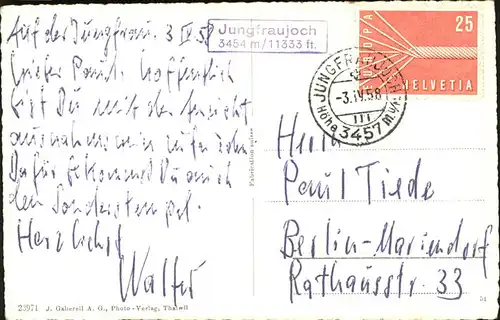 Auf der Jungfrau. 3 IV 58
Jungfraujoch
3454 m/11333 ft.
Lieber Paul. Hoffentlich
bist Du mit der Ansicht
ausnahmsweise zufrieden
Dafür bekommst Du auch
den Sonderstempel.
Herzlichst
Walter
EUROPA
25
HELVETIA
JUNGFRAUJOCH
-3.IV.58
III
Höhe 3457 M.ü.M.
Herrn
Paul Tiede
Berlin-Mariendorf
Rathausstr. 33
23971 J. Gaberell A. G., Photo-Verlag, Thalwil